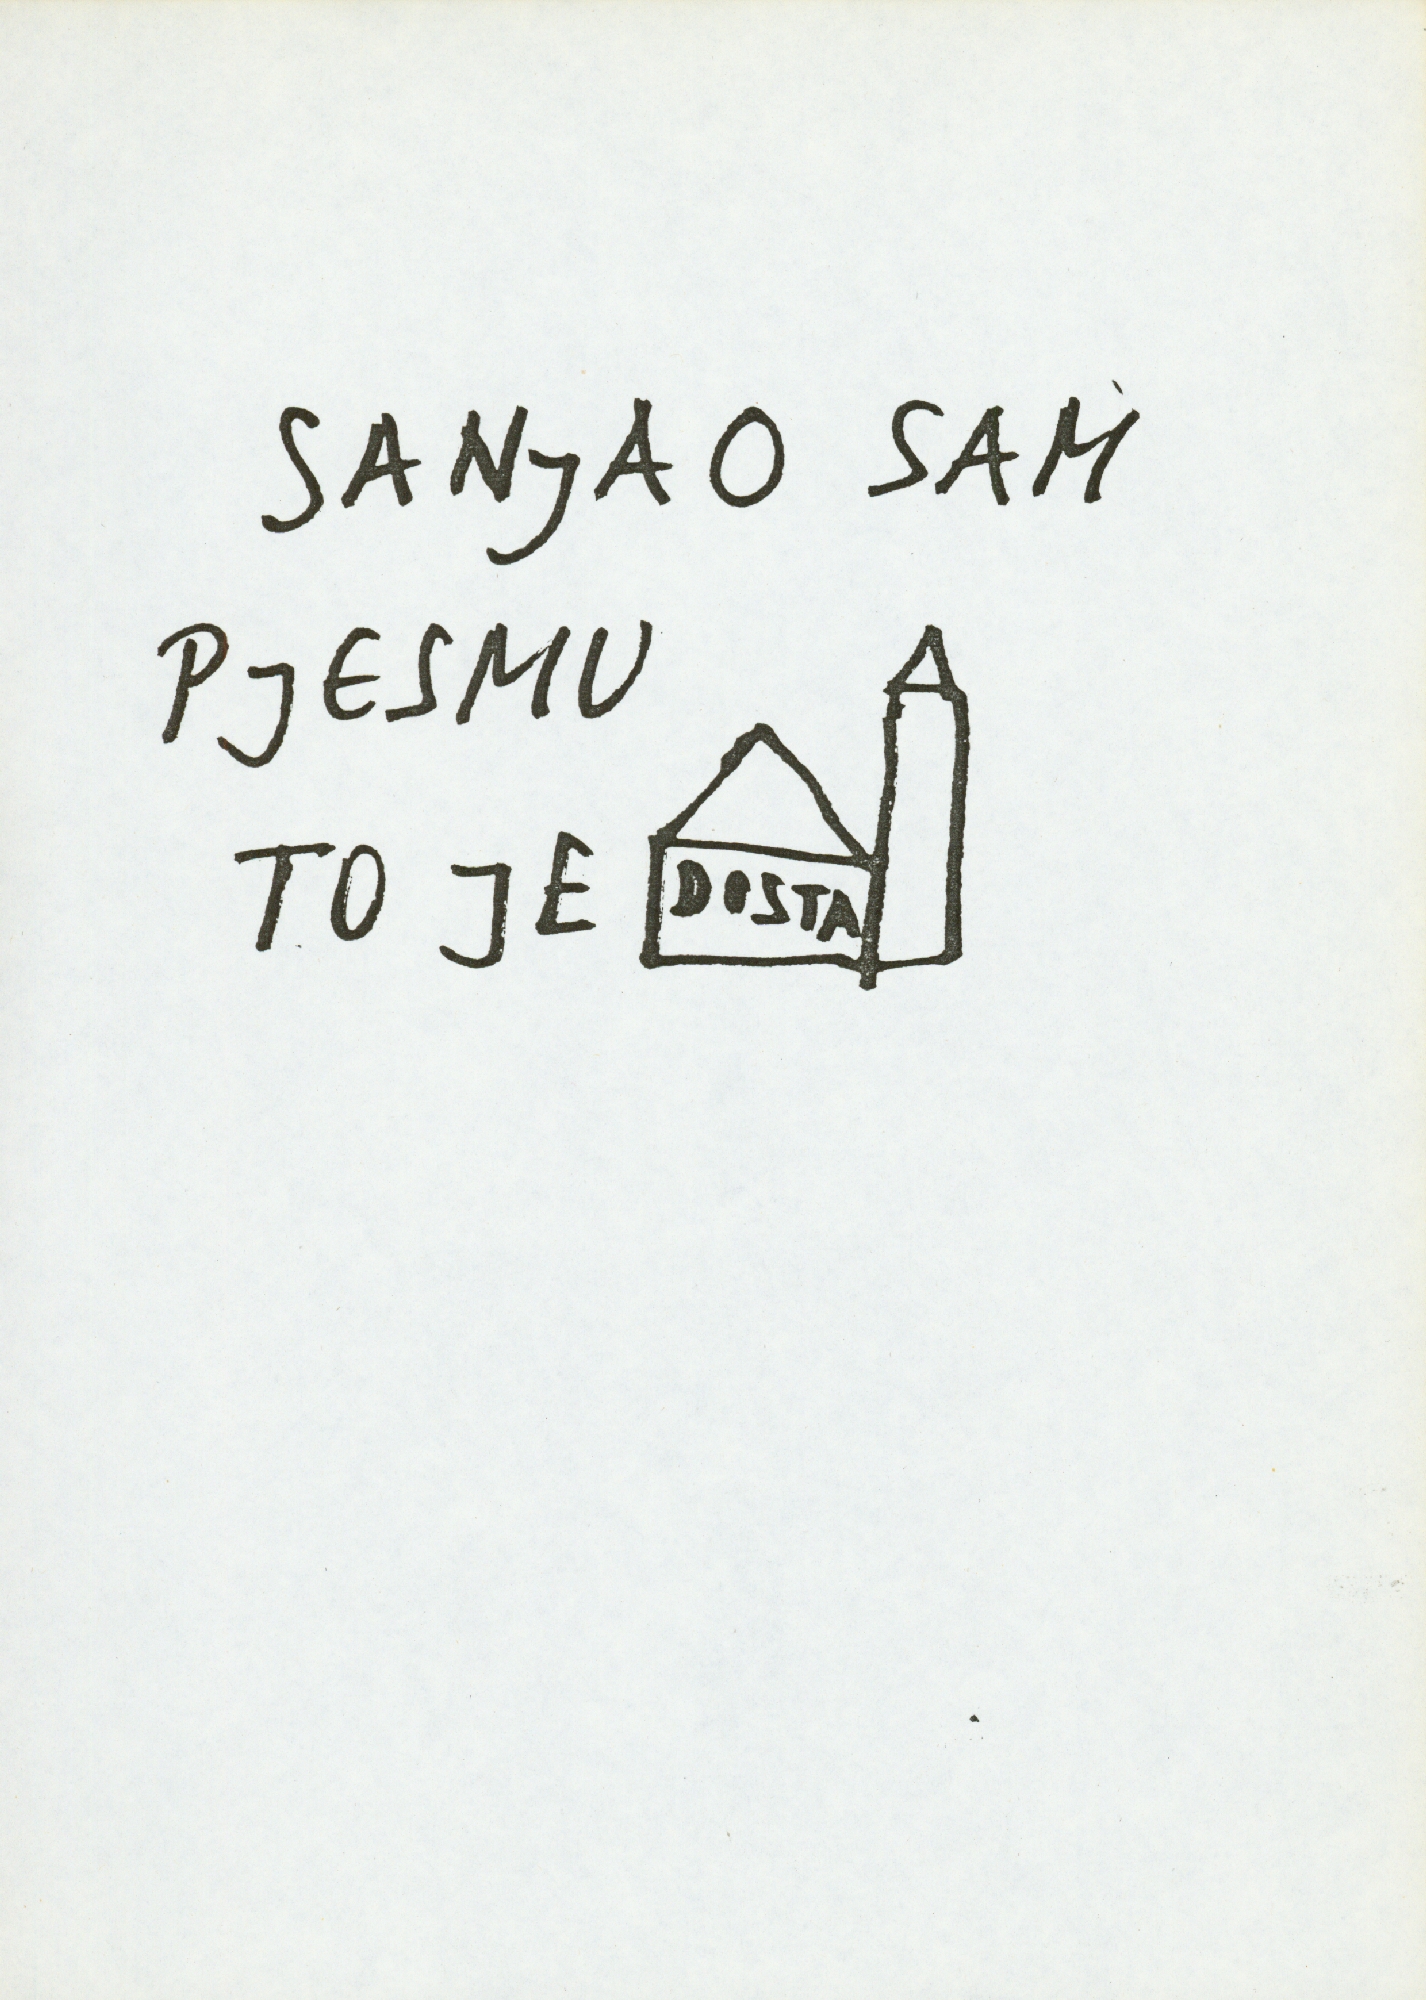 SANJAO SAM
PJESMU
TO JE DOSTA